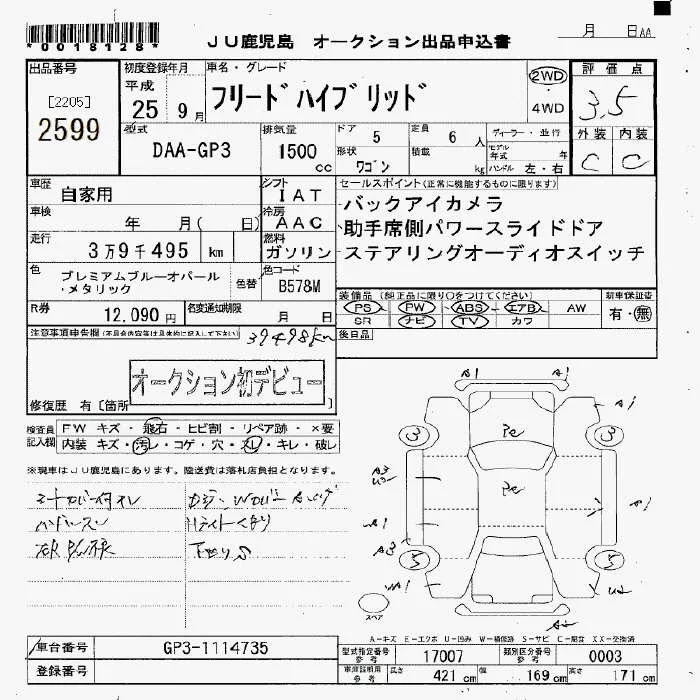 *0018128*
JU鹿児島 オークション出品申込書
月 日AA
出品番号
[2205]
2599
初度登録年月
平成
25 9月
車名・グレード
フリードハイブリッド
2WD
4WD
評価点
3.5
外装 内装
C C
型式
DAA-GP3
排気量
1500
cc
ドア 5
形状 ワゴン
定員 6 人
積載 kg
ディーラー・並行
モデル年式 年
ハンドル 左・右
車歴
自家用
シフト
IAT
車検
年 月( 日)
冷房
AAC
走行
3万9千495 km
燃料
ガソリン
色
プレミアムブルーオパール
・メタリック
色替
色コード
B578M
R券
12,090円
名変通知期限
月 日
セールスポイント(正常に機能するものに限ります)
バックアイカメラ
助手席側パワースライドドア
ステアリングオーディオスイッチ
装備品(純正品に限り○をつけてください)
PS PW ABS エアB AW
SR ナビ TV カワ
新車保証書
有・無
後日品
注意事項申告欄(不具合内容等は具体的に記入して下さい)
39498km
オークション初デビュー
修復歴 有〔箇所
検査員
記入欄
FW キズ・飛石・ヒビ割・リペア跡・×要
内装 キズ・汚レ・コゲ・穴・スレ・キレ・破レ
※現車はJU鹿児島にあります。陸送費は落札店負担となります。
A1 A1
A1
3 3
A1
A1
A3
5 5
スペア
A-キズ E-エクボ U-凹み W-補修跡 S-サビ C-腐食 XX-交換済
車台番号
GP3-1114735
登録番号
型式指定番号
参考
17007
類別区分番号
参考
0003
車庫証明用
参考
長さ 421 cm
幅 169 cm
高さ 171 cm